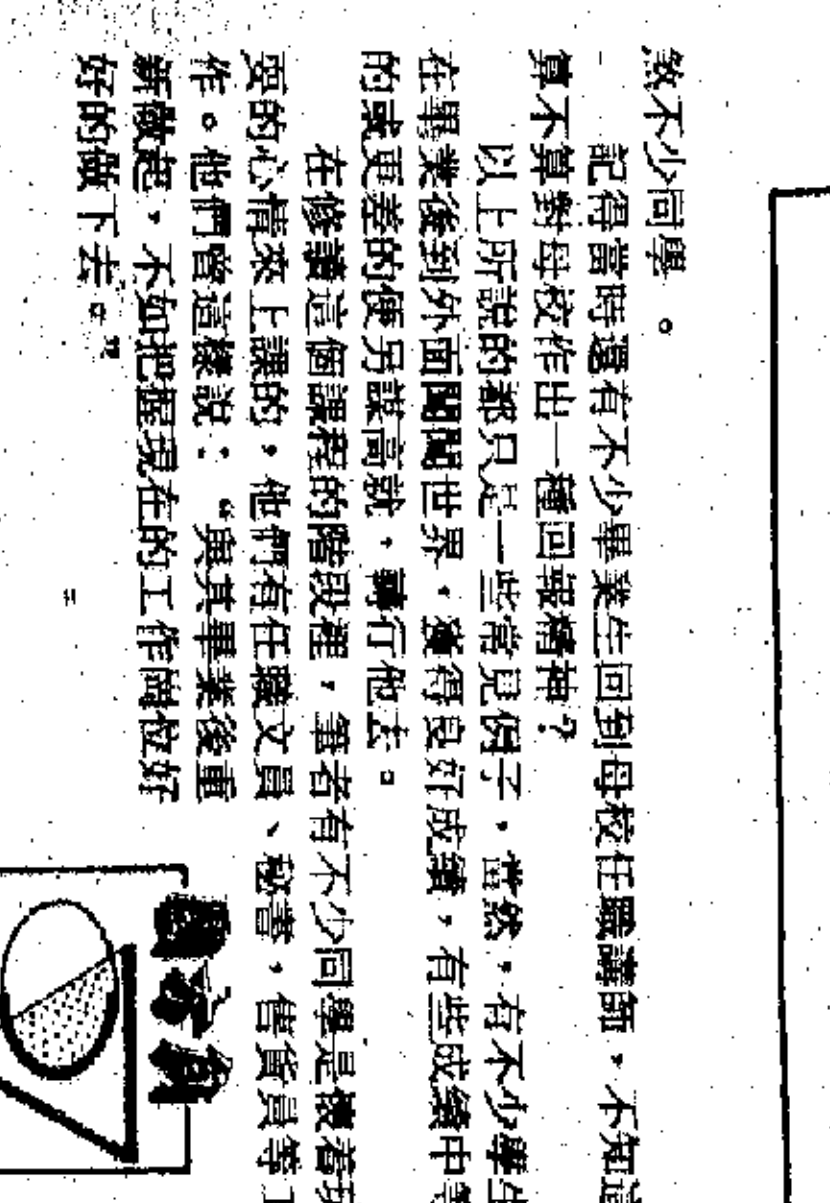 煞不少同學。
記得當時還有不少畢業生回到母校任職講師，不知道
算不算對母校作出一種回報精神？
以上所說的都只是一些常見例子，當然，有不少學生
在畢業後到外面闖闖世界，獲得良好成績，有些成績中等
的或更差的便另謀高就，轉行他去。
在修讀這個課程的階段裡，筆者有不少同學是懷着玩
耍的心情來上課的，他們有任職文員、秘書，售貨員等工
作。他們曾這樣說：“與其畢業後重
新做起，不如把握現在的工作崗位好
好的做下去。”